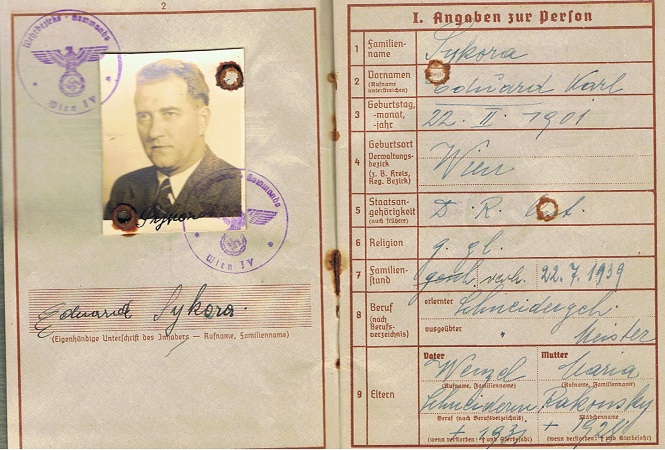 2
Wehrbezirks-Kommando
Wien IV
Sykora
Wehrbezirks-Kommando
Wien IV
Eduard Sykora.
(Eigenhändige Unterschrift des Inhabers — Rufname, Familienname)
I. Angaben zur Person
1 Familien-
name
Sykora
2 Vornamen
(Rufname
unterstreichen)
Eduard Karl
3 Geburtstag,
-monat,
-jahr
22. II. 1901
4 Geburtsort
Verwaltungs-
bezirk
(z. B. Kreis,
Reg. Bezirk)
Wien
5 Staatsan-
gehörigkeit
(auch frühere)
D. R.
6 Religion
g. gl.
7 Familien-
stand
gesch. verh. 22.7.1939
8 Beruf
(nach
Berufs-
verzeichnis)
erlernter
Schneidergeh.
ausgeübter
" Meister
9 Eltern
Vater
Wenzel
(Rufname, Familienname)
Schneiderm.
Beruf (nach Berufsverzeichnis)
(wenn verstorben: † und Sterbejahr)
Mutter
Maria
(Rufname, Familienname)
Rakonsky
Mädchenname
(wenn verstorben: † und Sterbejahr)